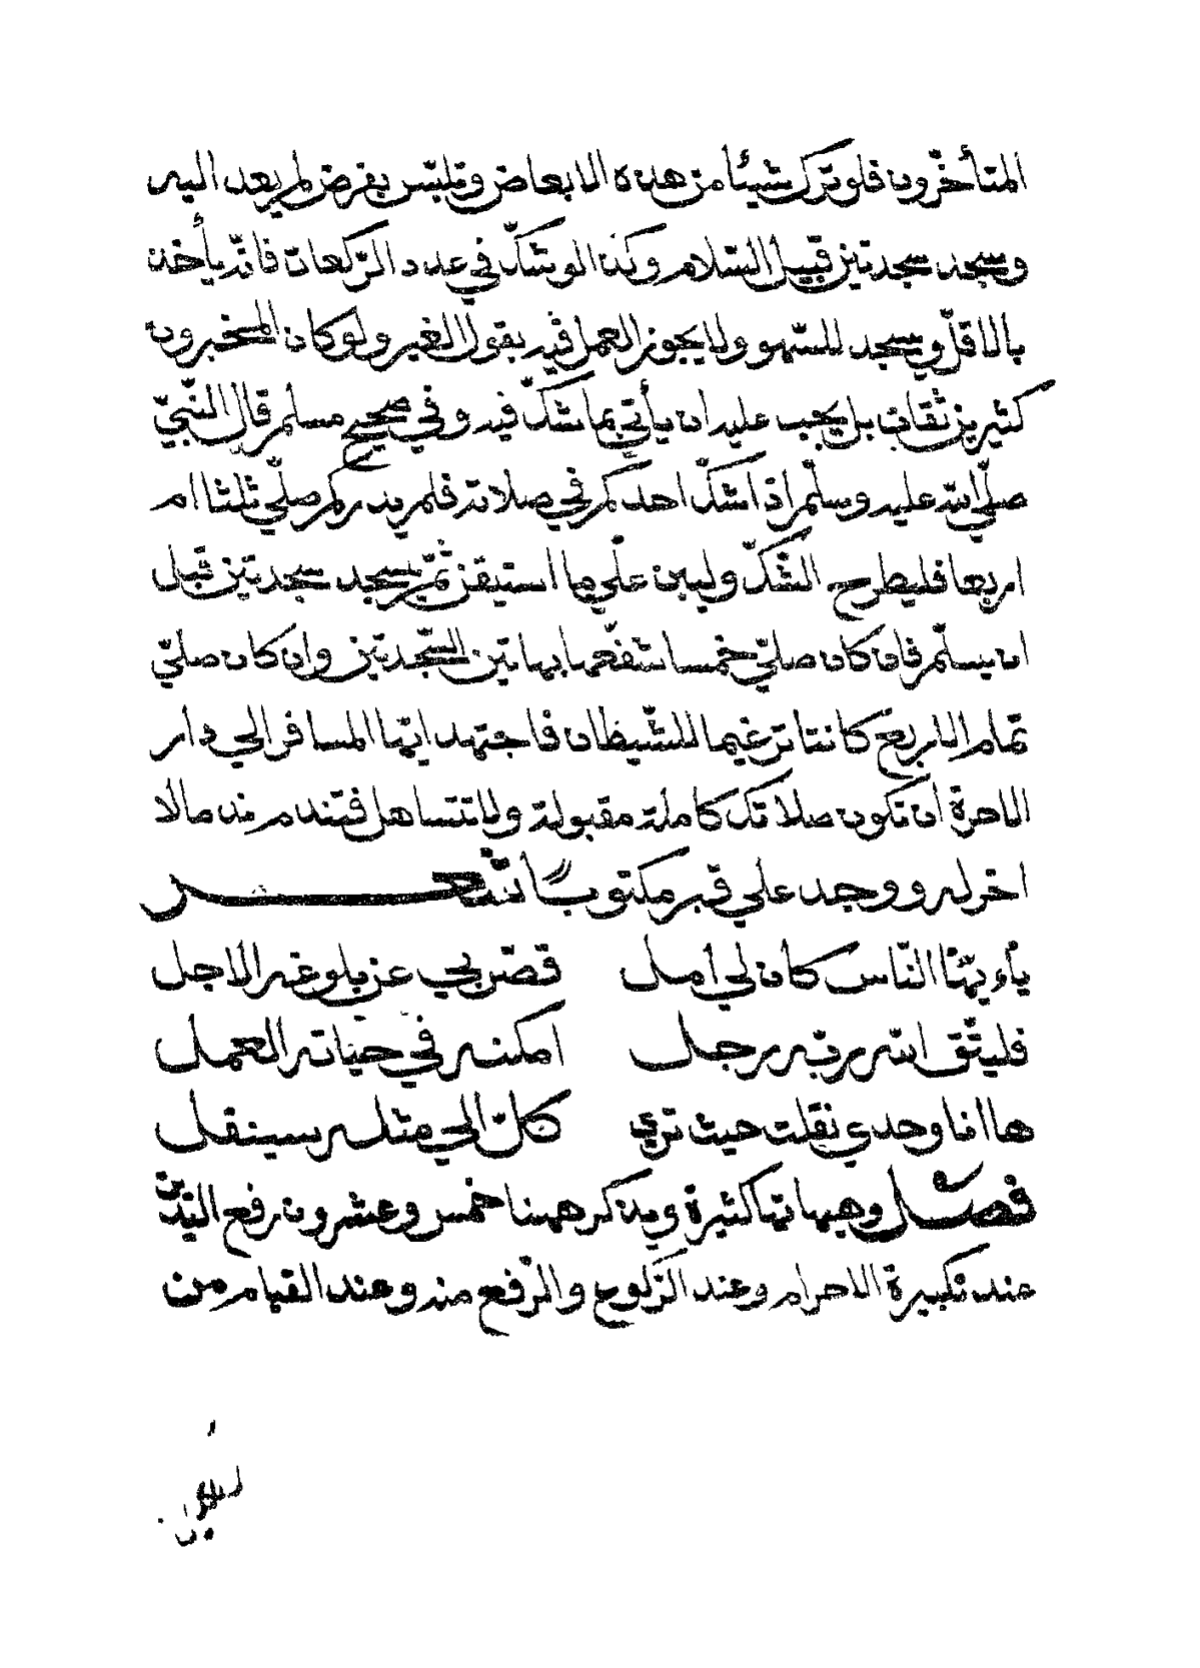 المتأخّرون فلو ترك شيئا من هذه الابعاض وتلبّس بفرض لم يعد اليه
وسجد سجدتين قبيل السّلام وكذا لو شكّ في عدد الرّكعات فانّه يأخذ
بالاقلّ ويسجد للسّهو ولا يجوز العمل فيه بقول الغير ولو كان المخبرون
كثيرين ثقات بل يجب عليه ان يأتي بما شكّ فيه وفي صحيح مسلم قال النّبيّ
صلّي الله عليه وسلّم اذا شكّ احدكم في صلاته فلم يدر كم صلّي ثلثا ام
اربعا فليطرح الشّكّ وليبن علي ما استيقن ثمّ يسجد سجدتين قبل
ان يسلّم فان كان صلّي خمسا شفّعها بهاتين السّجدتين وان كان صلّي
تمام الاربع كانتا ترغيما للشّيطان فاجتهد ايّها المسافر الي دار
الاخرة ان تكون صلاتك كاملة مقبولة ولا تتساهل فتندم ندما لا
اخر له ووجد علي قبر مكتوبًا شعر
يأيّها النّاس كان لي امل قصّر بي عن بلوغه الاجل
فليتّق الله ربّه رجل امكنه في حياته العمل
ها انا وحدي نقلت حيث تري كلّ الي مثله سينقل
فصل وهيهاتها كثيرة ويذكر ههنا خمس وعشرون رفع اليدين
عند تكبيرة الاحرام وعند الرّكوع والرّفع منه وعند القيام من